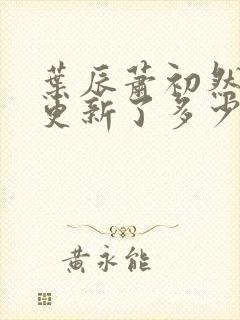 葉辰蕭初然
更新了多少
黄永能